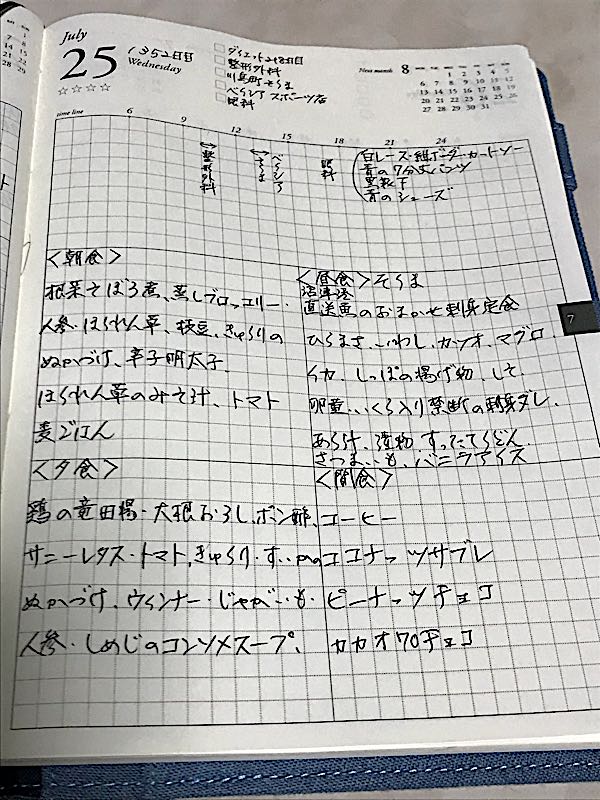 July
25
Wednesday
1352日目
☆☆☆☆
□ ダイエット218日目
□ 整形外科
□ 川島町 そらま
□ べらしア スポーツ店
□ 眼科
Next month 8
1 2 3 4 5
6 7 8 9 10 11 12
13 14 15 16 17 18 19
20 21 22 23 24 25 26
27 28 29 30 31
time line 6 9 12 15 18 21 24
整形外科
そらま
べらしア
眼科
白レース・紺ボーダーカットソー
青の7分丈パンツ
黒靴下
青のシューズ
<朝食>
根菜そぼろ煮、蒸しブロッコリー・
人参・ほうれん草、枝豆、きゅうりの
ぬかづけ、辛子明太子、
ほうれん草のみそ汁、トマト
麦ごはん
<昼食> そらま
沼津港
直送魚のおまかせ刺身定食
ひらまさ、いわし、カツオ、マグロ、
イカ、しっぽの揚げ物、
卵黄、いくら入り禁断の刺身ダレ、
あら汁、漬物、すったてうどん、
さつまいも、バニラアイス
7
<夕食>
鶏の竜田揚・大根おろし、ポン酢、
サニーレタス・トマト、きゅうり・
ぬかづけ、ウィンナー・じゃがいも・
人参・しめじのコンソメスープ、
<間食>
コーヒー
ココナッツサブレ
ピーナッツチョコ
カカオ70チョコ